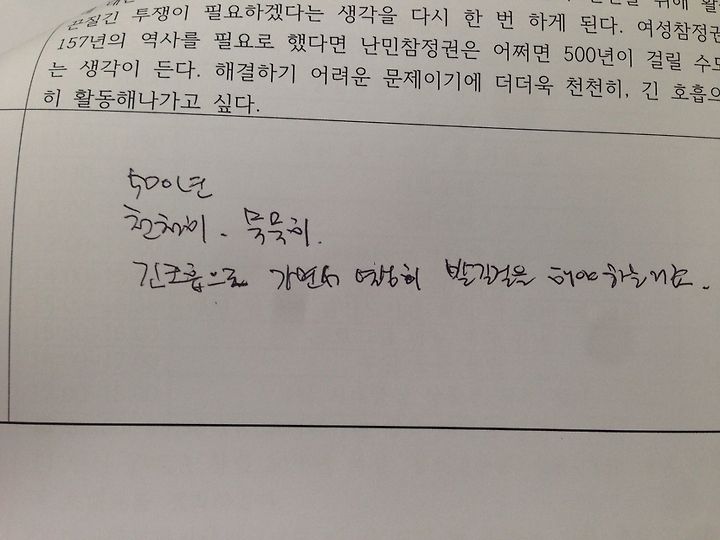 위해 활
끈질긴 투쟁이 필요하겠다는 생각을 다시 한 번 하게 된다. 여성참정권
157년의 역사를 필요로 했다면 난민참정권은 어쩌면 500년이 걸릴 수도
는 생각이 든다. 해결하기 어려운 문제이기에 더더욱 천천히, 긴 호흡으
히 활동해나가고 싶다.
500년
천천히. 묵묵히.
긴호흡으로 가면서 열심히 발길질을 해야하는거죠.